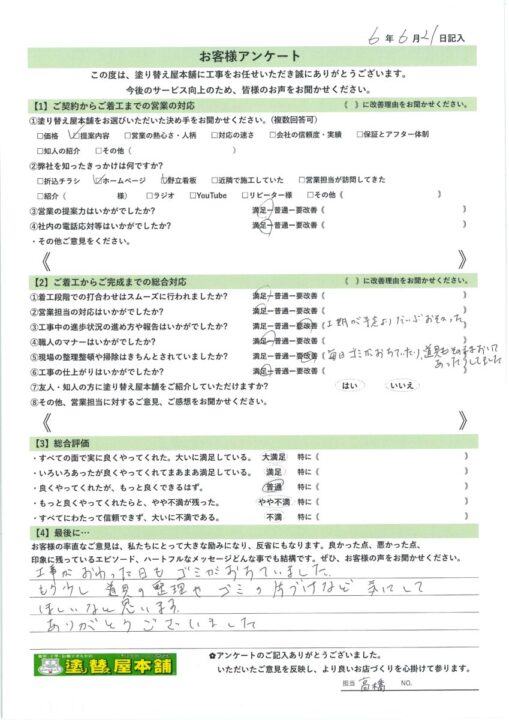 6年6月21日記入
お客様アンケート
この度は、塗り替え屋本舗に工事をお任せいただき誠にありがとうございます。
今後のサービス向上のため、皆様のお声をお聞かせください。
【1】ご契約からご着工までの営業の対応 《 》に改善理由をお聞かせください。
①塗り替え屋本舗をお選びいただいた決め手をお聞かせください。(複数回答可)
□価格 □提案内容 □営業の熱心さ・人柄 □対応の速さ □会社の信頼度・実績 □保証とアフター体制
□知人の紹介 □その他( )
②弊社を知ったきっかけは何ですか?
□折込チラシ □ホームページ □野立看板 □近隣で施工していた □営業担当が訪問してきた
□紹介( 様) □ラジオ □YouTube □リピーター様 □その他( )
③営業の提案力はいかがでしたか? 満足ー普通ー要改善( )
④社内の電話応対等はいかがでしたか? 満足ー普通ー要改善( )
・その他ご意見をください。
《 》
【2】ご着工からご完成までの総合対応 《 》に改善理由をお聞かせください。
①着工段階での打合わせはスムーズに行われましたか? 満足ー普通ー要改善( )
②営業担当の対応はいかがでしたか? 満足ー普通ー要改善( )
③工事中の進歩状況の進め方や報告はいかがでしたか? 満足ー普通ー要改善(工期が予定よりだいぶおそかった
④職人のマナーはいかがでしたか? 満足ー普通ー要改善( )
⑤現場の整理整頓や掃除はきちんとされていましたか? 満足ー普通ー要改善(毎日ゴミがおちていたり、道具も
あったりしてました
⑥工事の仕上がりはいかがでしたか? 満足ー普通ー要改善( )
⑦友人・知人の方に塗り替え屋本舗をご紹介していただけますか? はい いいえ
⑧その他、営業担当に対するご意見、ご感想をお聞かせください。
《 》
【3】総合評価
・すべての面で実に良くやってくれた。大いに満足している。 大満足 特に( )
・いろいろあったが良くやってくれてまあまあ満足している。 満足 特に( )
・良くやってくれたが、もっと良くできるはず。 普通 特に( )
・もっと良くやってくれたらと、やや不満が残った。 やや不満 特に( )
・すべてにわたって信頼できず、大いに不満である。 不満 特に( )
【4】最後に…
お客様の率直なご意見は、私たちにとって大きな励みになり、反省にもなります。良かった点、悪かった点、
印象に残っているエピソード、ハートフルなメッセージどんな事でも結構です。ぜひ、お客様の声をお聞かせください。
工事がおわった日もゴミがおちていました。
もう少し道具の整理やゴミの片づけなど気にして
ほしいなと思います。
ありがとうございました
塗替屋本舗
✿アンケートのご記入ありがとうございました。
いただいたご意見を反映し、より良いお店づくりを心掛けて参ります。
担当 高橋 NO.